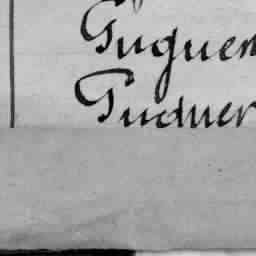 Guguen
Puduer